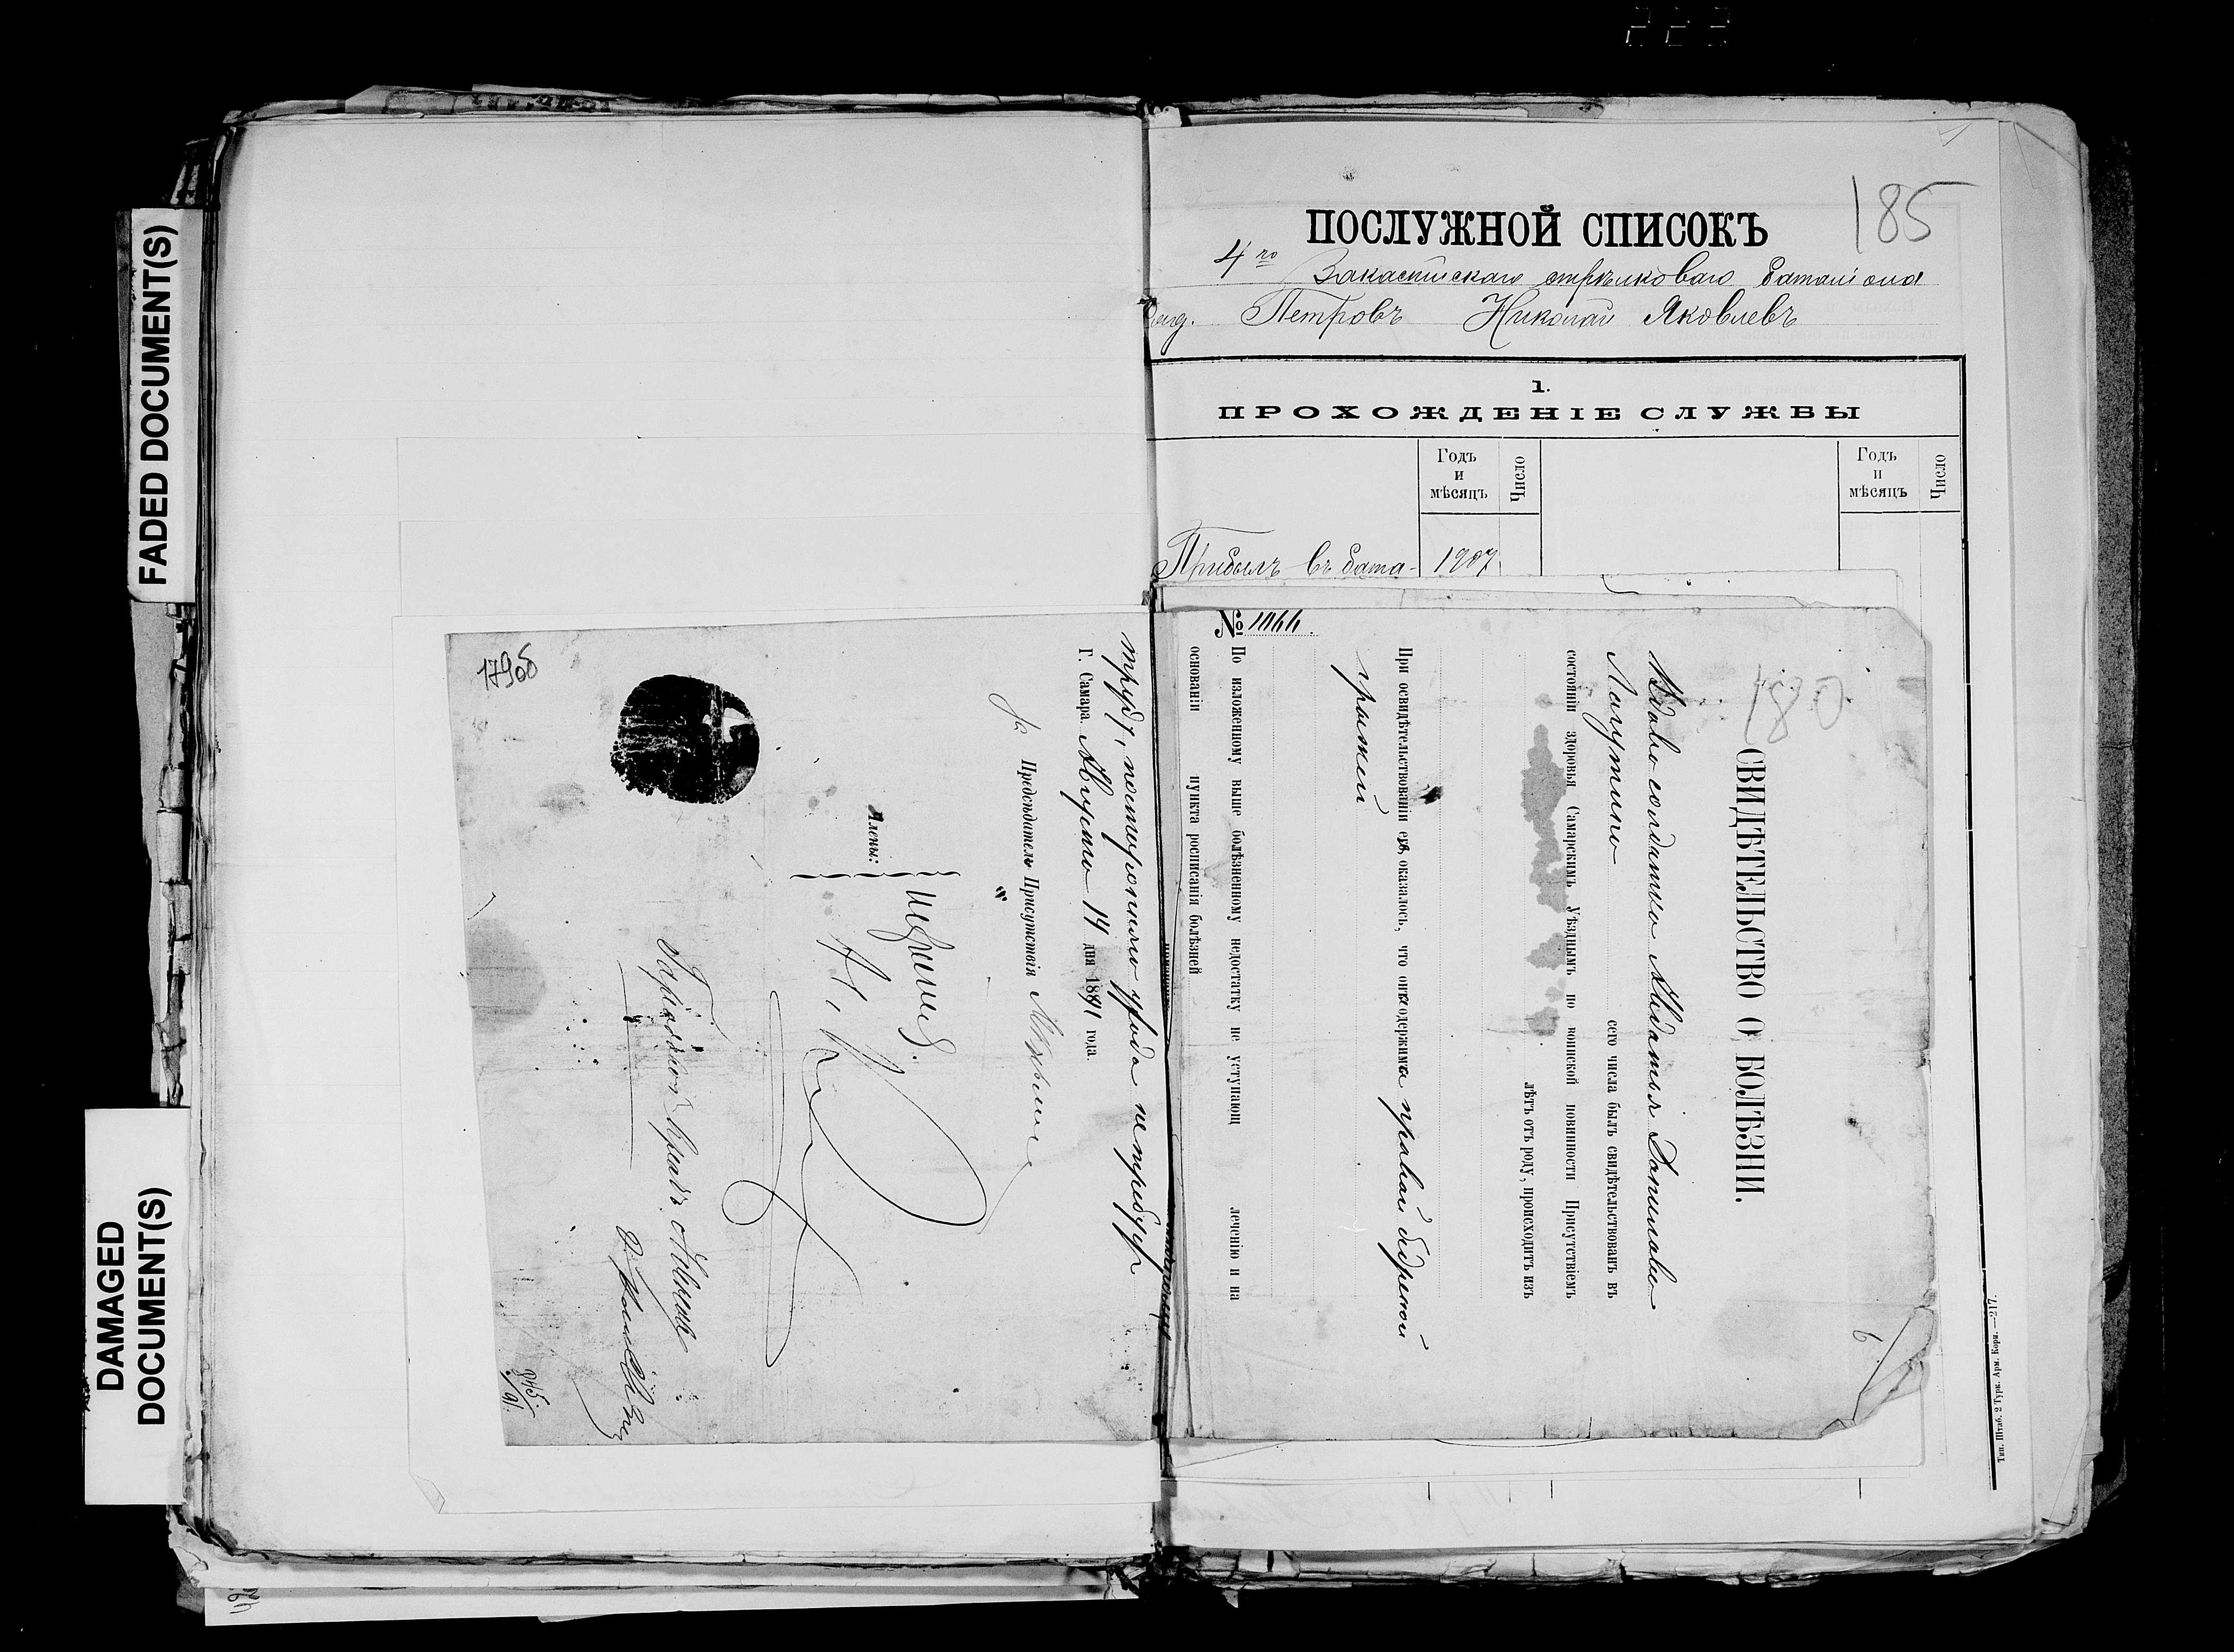 FADED DOCUMENT(S)
DAMAGED
DOCUMENT(S)
185
ПОСЛУЖНОЙ СПИСОКЪ
4го Закаспiйскаго стрѣлковаго баталiона
Петровъ Николай Яковлевъ
1.
ПРОХОЖДЕНIЕ СЛУЖБЫ
Годъ и мѣсяцъ
Число
Годъ и мѣсяцъ
Число
Прибылъ въ бата-
1907
Тип. Штаб. 2 Турк. Арм. Корп. —217.
180
6
СВИДѢТЕЛЬСТВО О БОЛѢЗНИ.
Вдова солдатка Авдотья Данилова
Лагутина сего числа былъ свидѣтельствованъ въ
состоянiи здоровья Самарскимъ Уѣзднымъ по воинской повинности Присутствiемъ
лѣтъ отъ роду, происходитъ изъ
При освидѣтельствованiи ея, оказалось, что она одержима правой бедреной
грыжей
По изложенному выше болѣзненному недостатку не уступающ леченiю и на
основанiи пункта росписанiя болѣзней
№ 1066.
труду, посторонняго ухода не требуетъ
Г. Самара. Августа 14 дня 1891 года.
Предсѣдатель Присутствiя
Члены:
Городовой Врачъ
17905
845/91.